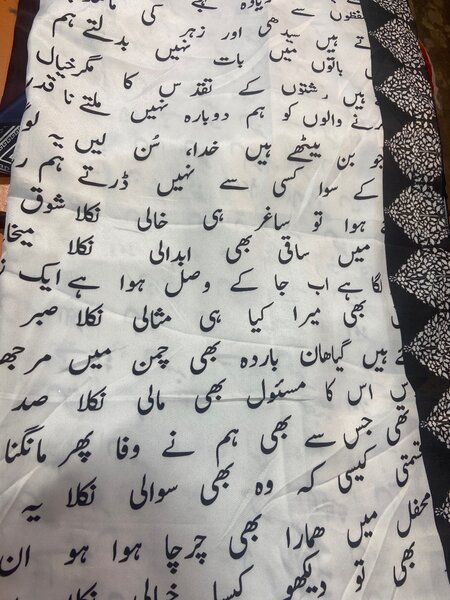 لفظوں سے زیادہ ہے کی
تے ہیں سیدھی اور زہر بدلتے ہم
باتوں میں بات نہیں مگر خیال
ہیں رشتوں کے تقدس کا ملتے نا قدر
رنے والوں کو ہم دوبارہ نہیں
جو بن بیٹھے ہیں خدا، سُن لیں یہ لوگ
کے سوا کسی سے نہیں ڈرتے ہم ر
ہوا تو ساغر ہی خالی نکلا شوق
میں ساقی بھی ابدالی نکلا میخا
لگا ہے اب جا کے وصل ہوا ہے ایک
بھی میرا کیا ہی مثالی نکلا صبر
تے ہیں گیاھان باردہ بھی چمن میں مرجھ
س اس کا مسئول بھی مالی نکلا صد
تھی جس سے بھی ہم نے وفا پھر مانگنا
قسمتی کیسی کہ وہ بھی سوالی نکلا یہ
محفل میں ھمارا بھی چرچا ہوا ہو ان
بھی تو دیکھو کیسا خیالی نکلا